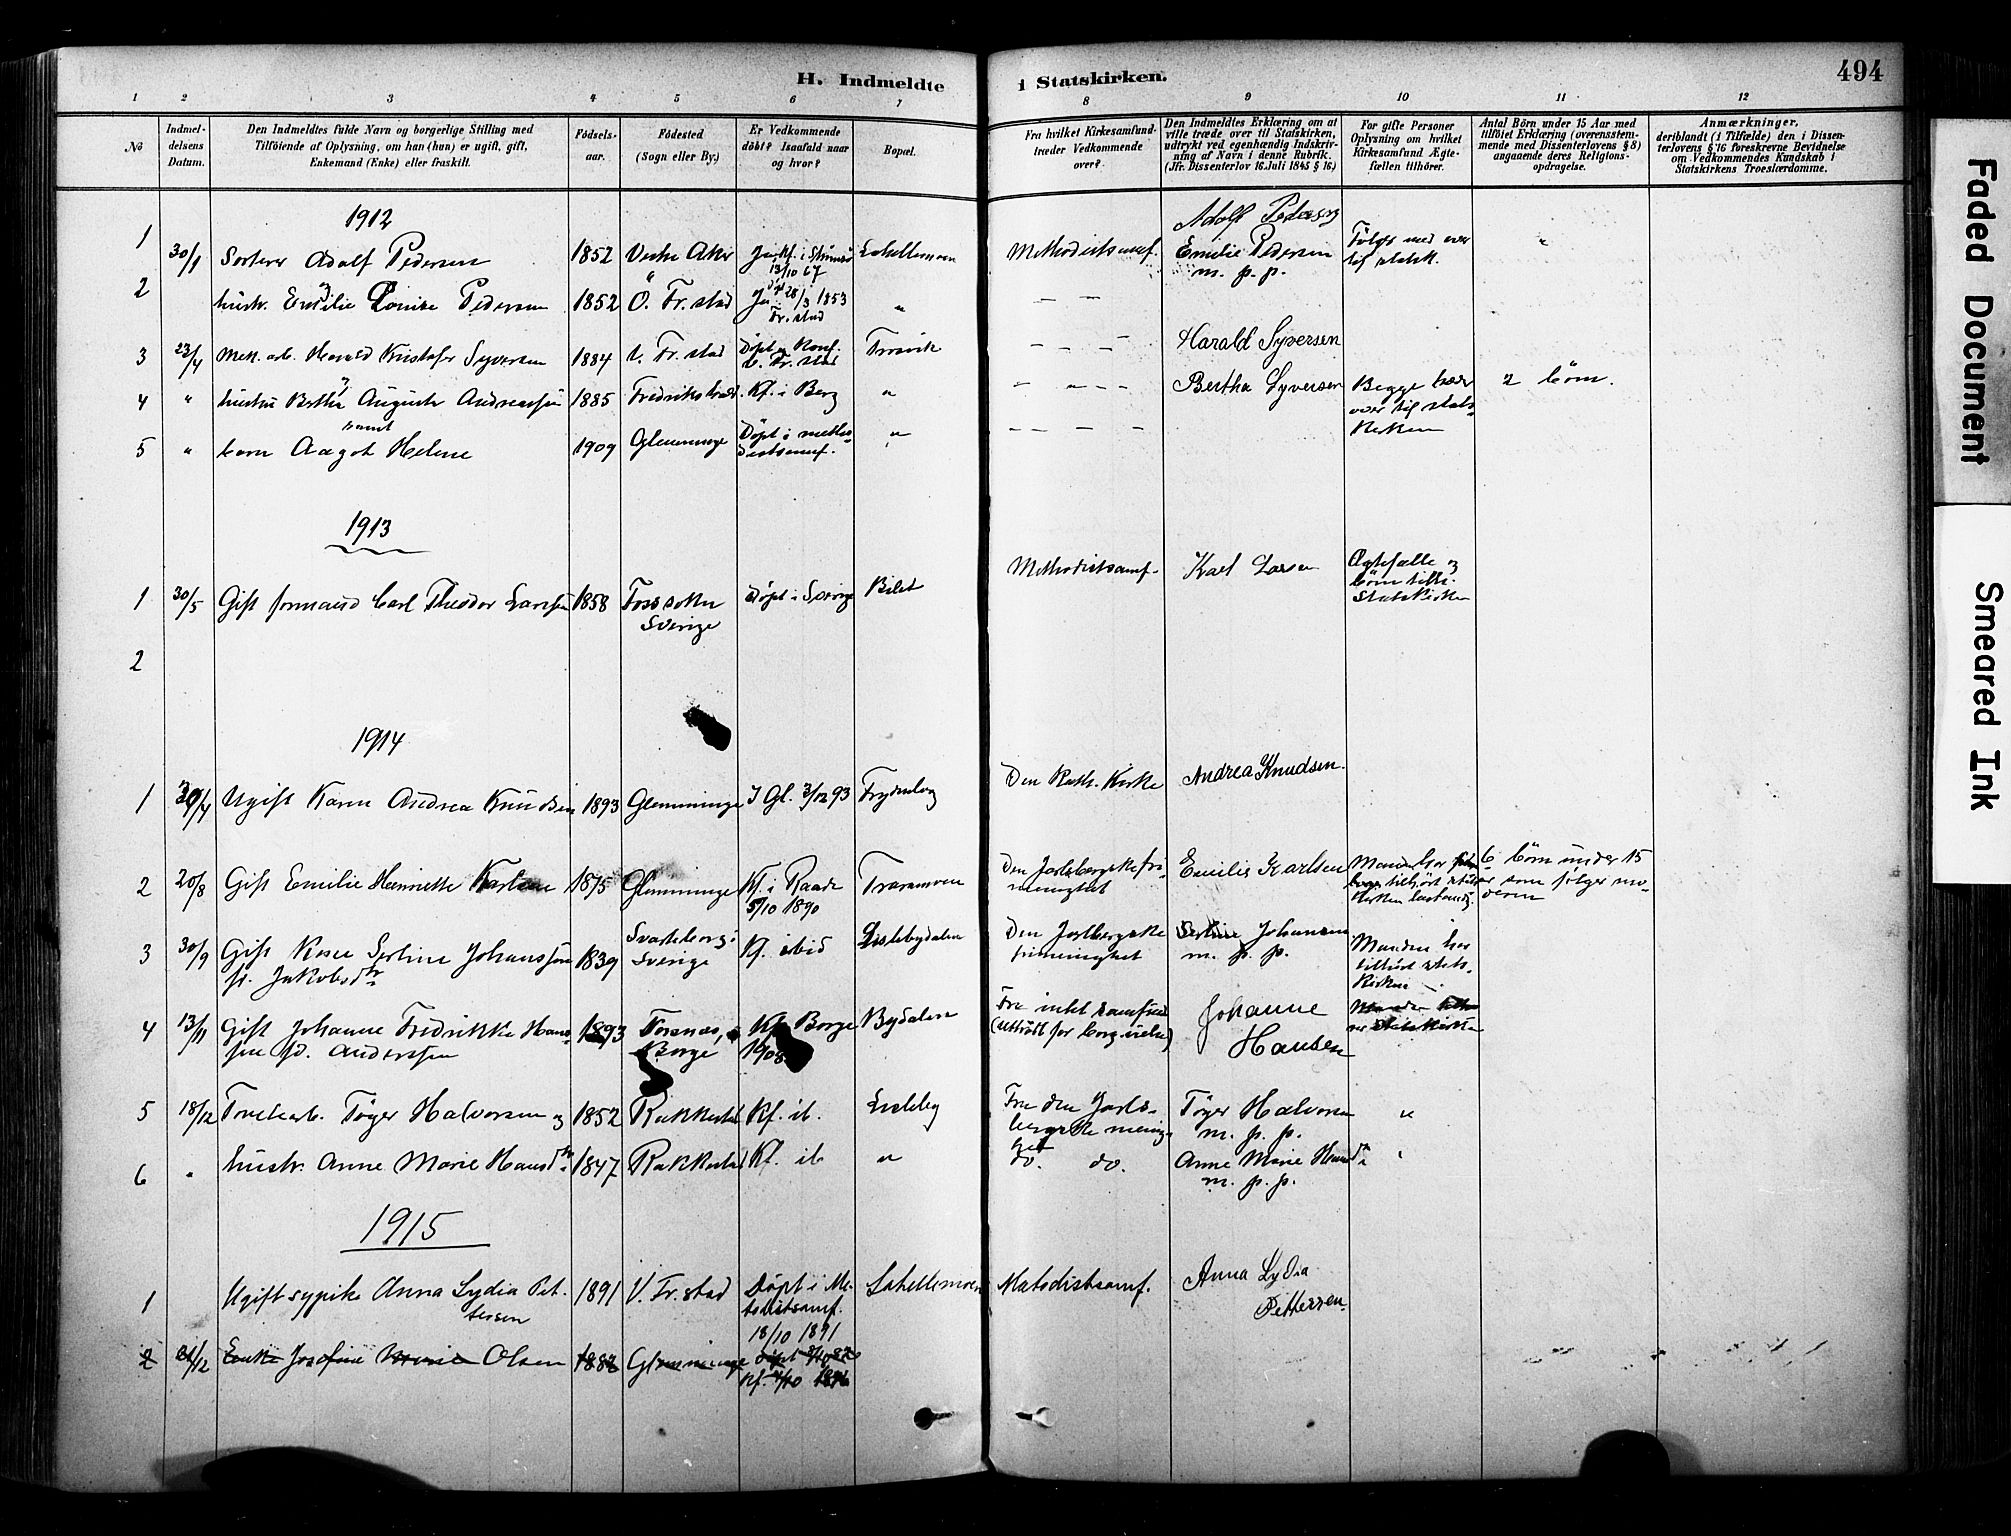 H. Indmeldte i Statskirken.
494
1 2 3 4 5 6 7 8 9 10 11 12
No
Indmeldelsens Datum.
Den Indmeldtes fulde Navn og borgerlige Stilling med
Tilføiende af Oplysning, om han (hun) er ugift, gift,
Enkemand (Enke) eller fraskilt.
Fødselsaar.
Fødested
(Sogn eller By.)
Er Vedkommende
døbt? Isaafald naar
og hvor?
Bopæl.
Fra hvilket Kirkesamfund
træder Vedkommende
over?
Den Indmeldtes Erklæring om at
ville træde over til Statskirken,
udtrykt ved egenhændig Indskrivning
af Navn i denne Rubrik.
(Jfr. Dissenterlov 16 Juli 1845 § 16)
For gifte Personer
Oplysning om hvilket
Kirkesamfund Ægtefællen
tilhører.
Antal Børn under 15 Aar med
tilføiet Erklæring (overensstemmende
med Dissenterlovens § 8)
angaaende deres Religionsopdragelse.
Anmærkninger,
deriblandt (i Tilfælde) den i Dissenterlovens
§ 16 foreskrevne Bevidnelse
om Vedkommendes Kundskab i
Statskirkens Troeslærdomme.
1912
1 30/1 Sorterer Adolf Pedersen 1852 Vestre Aker 13/10 67 Methodistsamf. Adolf Pedersen
2 hustr. Emilie Louise Pedersen 1852 Ö. Fr.stad Ja 28/3 1853 Fr.stad " Emilie Pedersen m. p. p.
Følges med over til statsk.
3 23/4 Mek. arb. Harald Kristofer Syversen 1884 V. Fr.stad Døpt og Konf. V. Fr.stad Trosvik Harald Syversen
4 " hustru Bertha Augusta Andreassen 1885 Fredrikshald Kf. i Berg " Bertha Syversen Begge træder over til statskirken 2 børn.
samt
5 " barn Aagot Helene 1909 Glemminge Døpt i methodistsamf. "
1913
1 30/5 Gift formand Carl Theodor Larssen 1858 Sverige Døpt i Sverige Methodistsamf. Karl Larsen Ægtefælle og børn tilh. Statskirken
2
1914
1 30/4 Ugift Karen Andrea Knudsen 1893 Glemminge I Gl. 3/12 93 Frydenberg Den Kath. Kirke Andrea Knudsen.
2 20/8 Gift Emilie Henriette Karlsen 1875 Glemminge Kf. i Raade 5/10 1890 Traramoen Den Jarlsbergske frimenighet Emilie Karlsen 6 børn under 15 år som følger moderen
3 30/9 Gift Serline Johanssen f. Jakobsdtr 1839 Svarteborg i Sverige Kf. ibid Lislebydalen Den Jarlsbergske frimenighet Serline Johansen m. p. p. Manden har tilhørt statskirken
4 13/11 Gift Johanne Fredrikke Hanssen fd. Anderssen 1893 Torsnæs, Borge Kf. Borge 1908 Bydalen Fra intet samfund (uttrådt for borg. vielse) Johanne Hansen
5 18/12 Tøger Halvorsen og 1852 Rakkestad Kf. ib. Lisleby Fra den Jarlsbergske menighet Tøger Halvorsen m. p. p. "
6 " hustr. Anne Marie Hansdtr 1847 Rakkestad Kf. ib " do. do. Anne Marie Hansdtr m. p. p.
1915
1 Ugift sypike Anna Lydia Pettersen 1891 V. Fr.stad Døpt i Metodistsamf. 18/10 1891 Metodistsamf. Anna Lydia Pettersen.
2 Enke Josefine Marie Olsen 1882 Glemminge
Faded Document
Smeared Ink